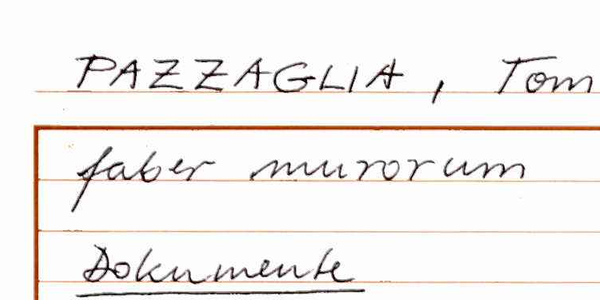 PAZZAGLIA, Tom
faber murorum
Dokumente